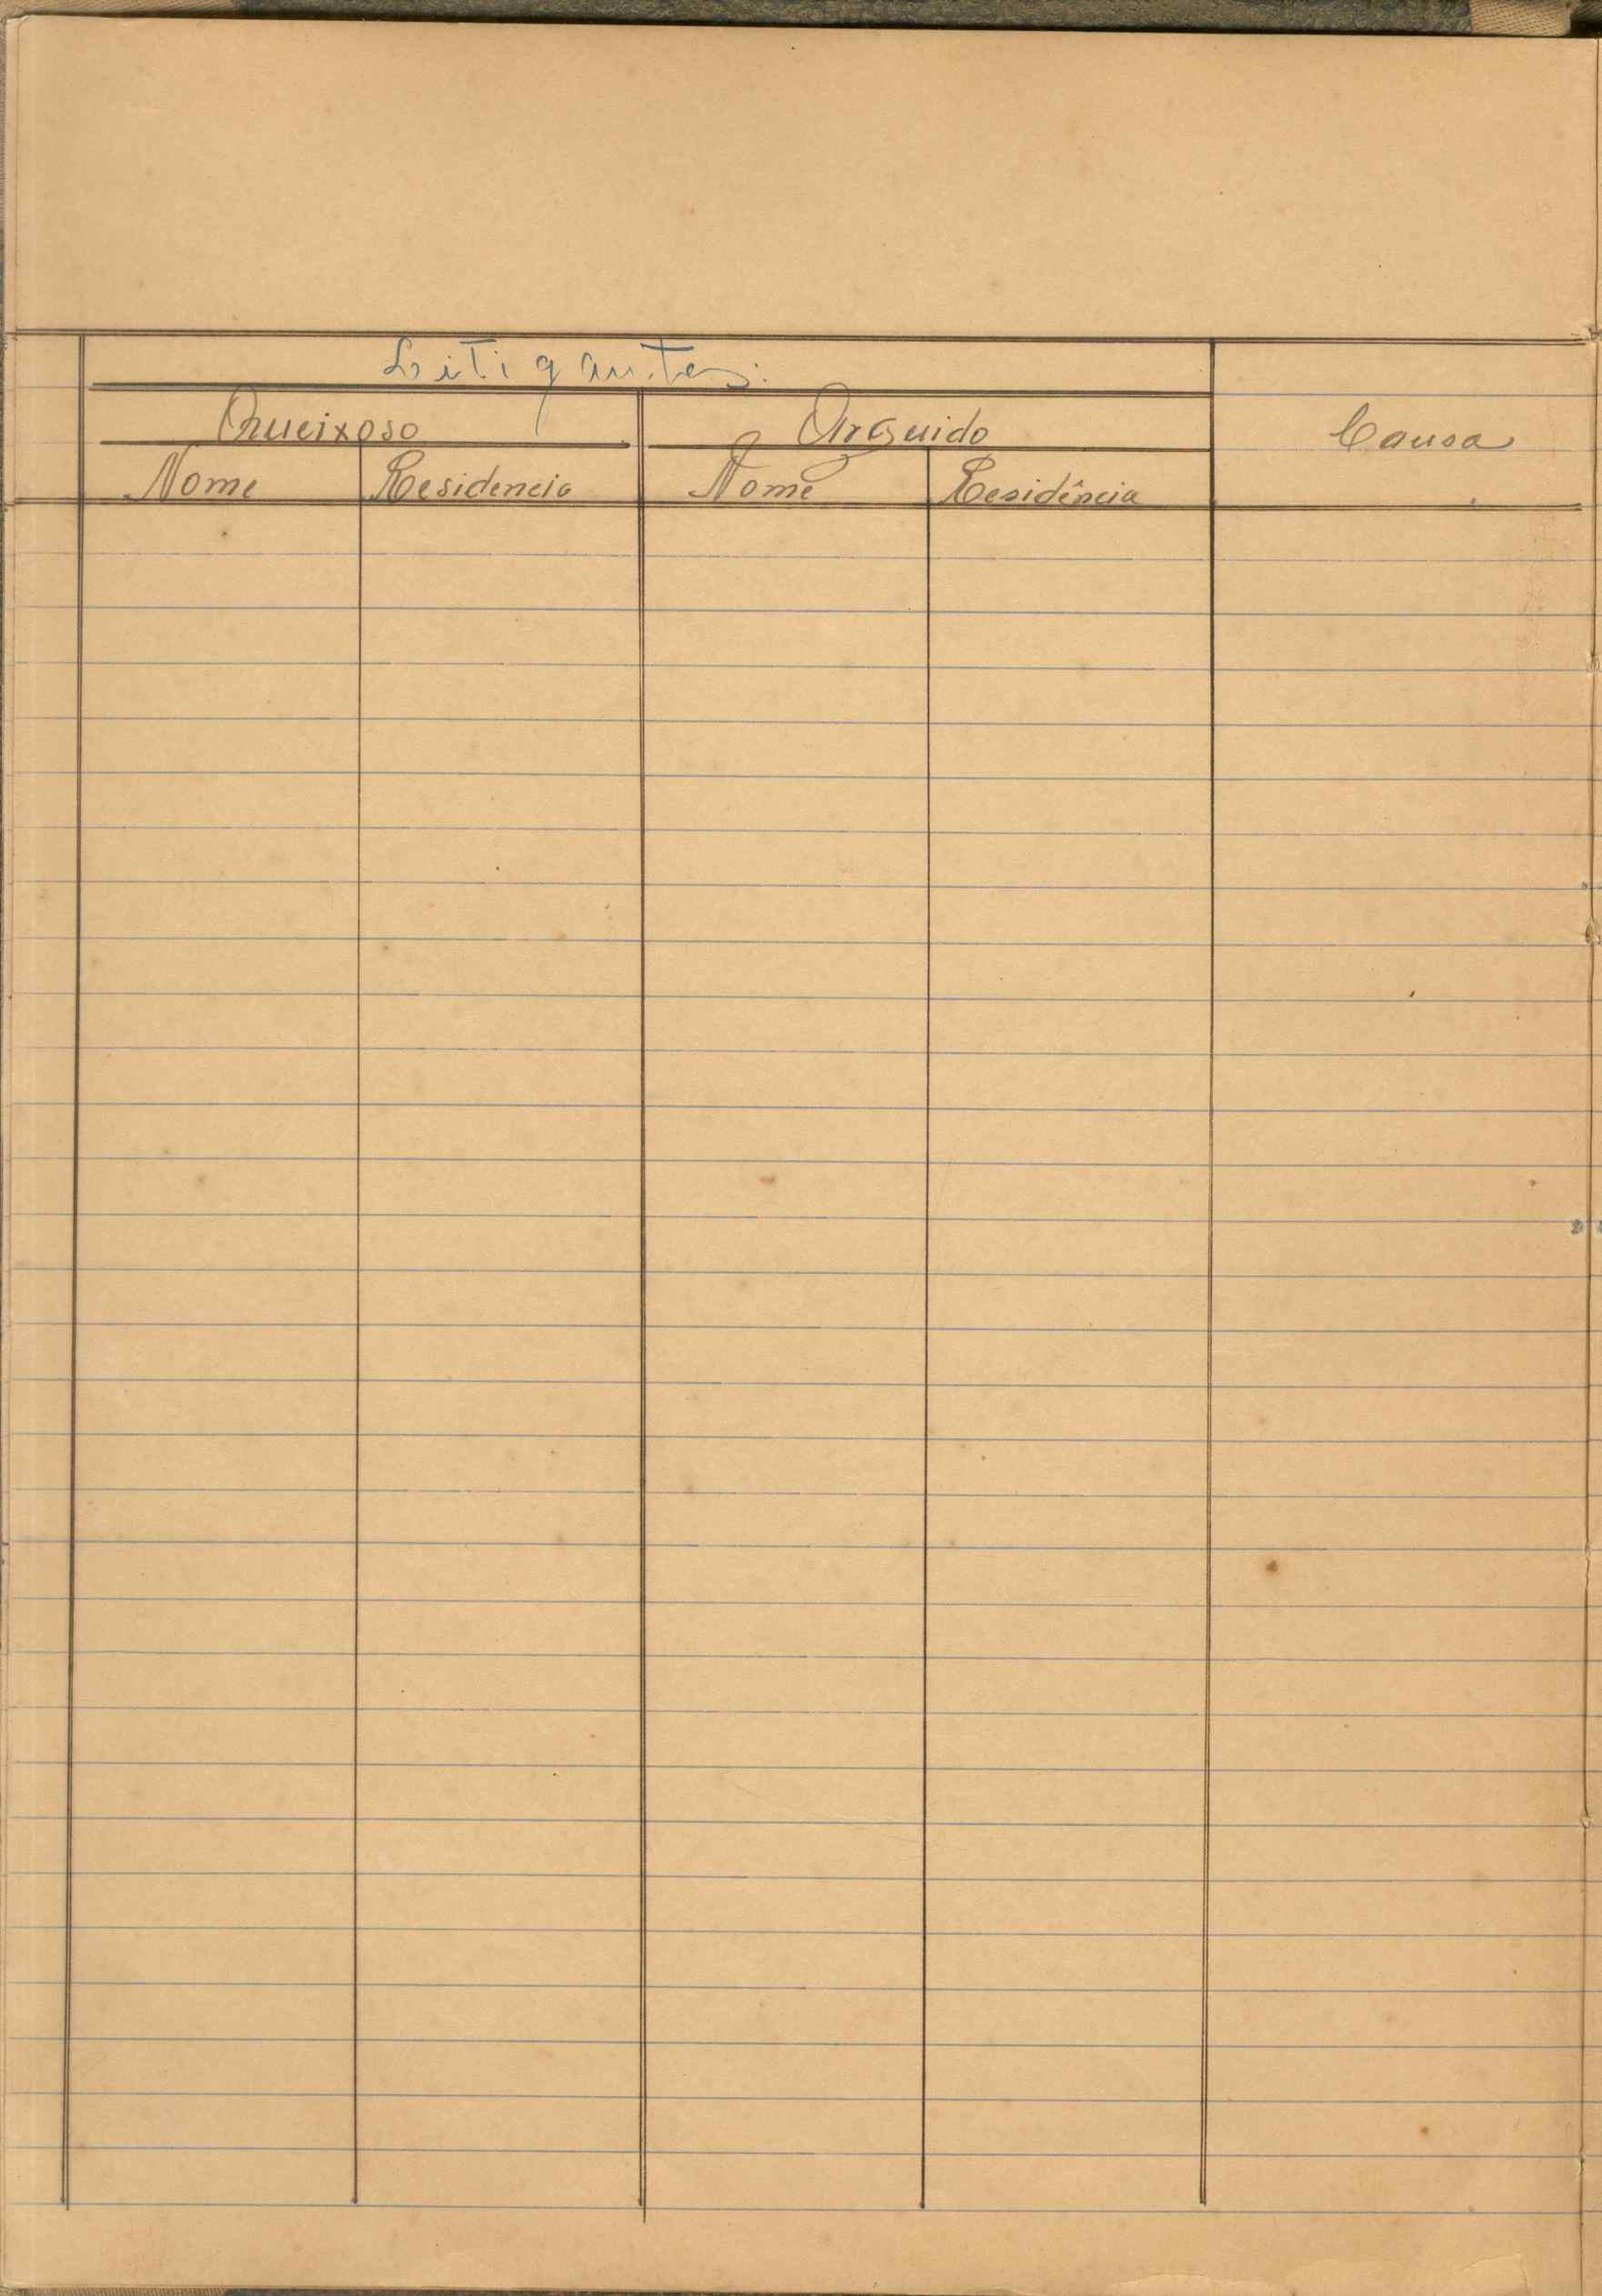 Litigantes.
Queixoso Arguido Causa
Nome Residencia Nome Residência